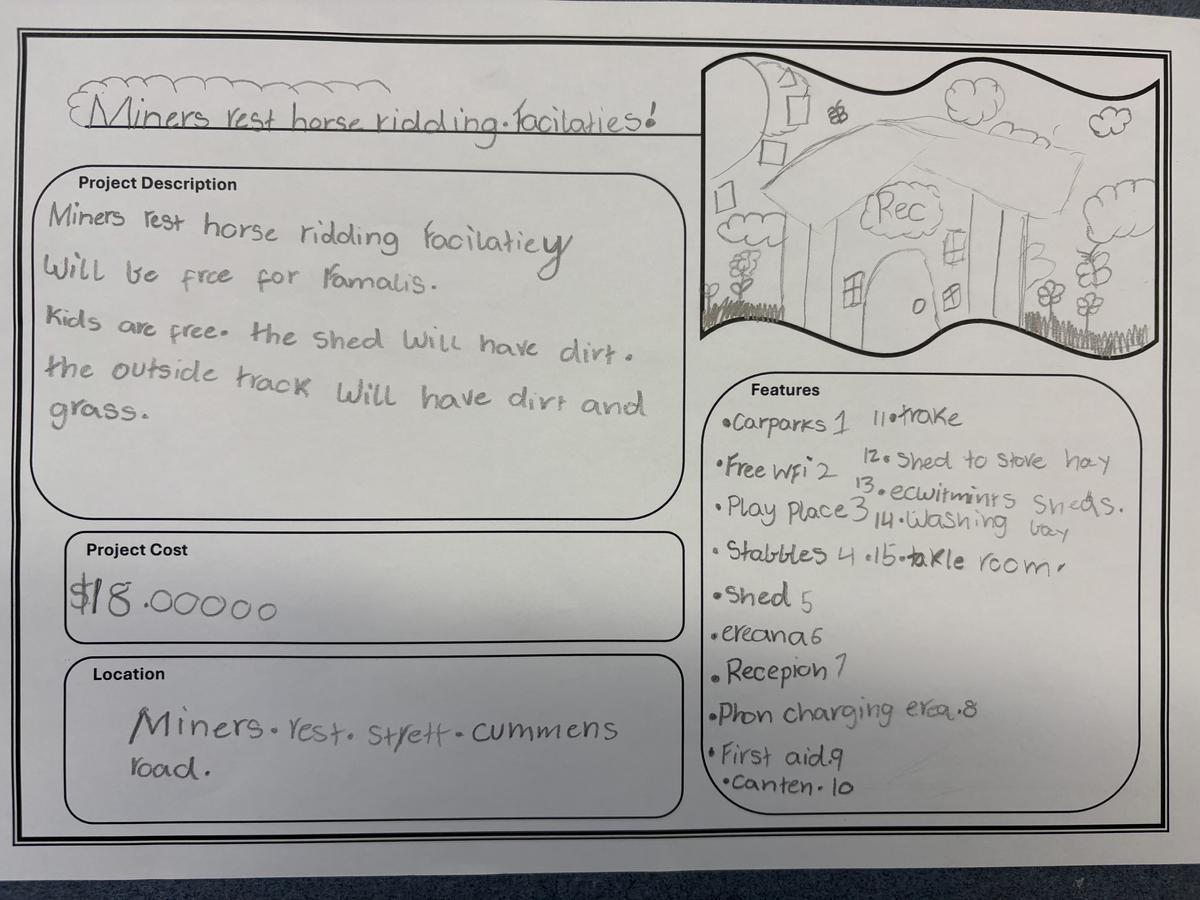 Miners rest horse ridding. facilaties!
Project Description
Miners rest horse ridding facilatiey
Will be free for Famalis.
Kids are free. the shed will have dirt.
the outside track will have dirt and
grass.
Project Cost
$18.00000
Location
Miners. rest. strett. cummens
road.
Rec
Features
•Carparks 1
•Free wfi 2
•Play place 3
•Stabbles 4
•Shed 5
•ereana 6
•Recepion 7
•Phon charging erea. 8
•First aid. 9
•Canten. 10
11•trake
12• Shed to store hay
13•ecwitmints sheds.
14•Washing bay
•15•takle room.